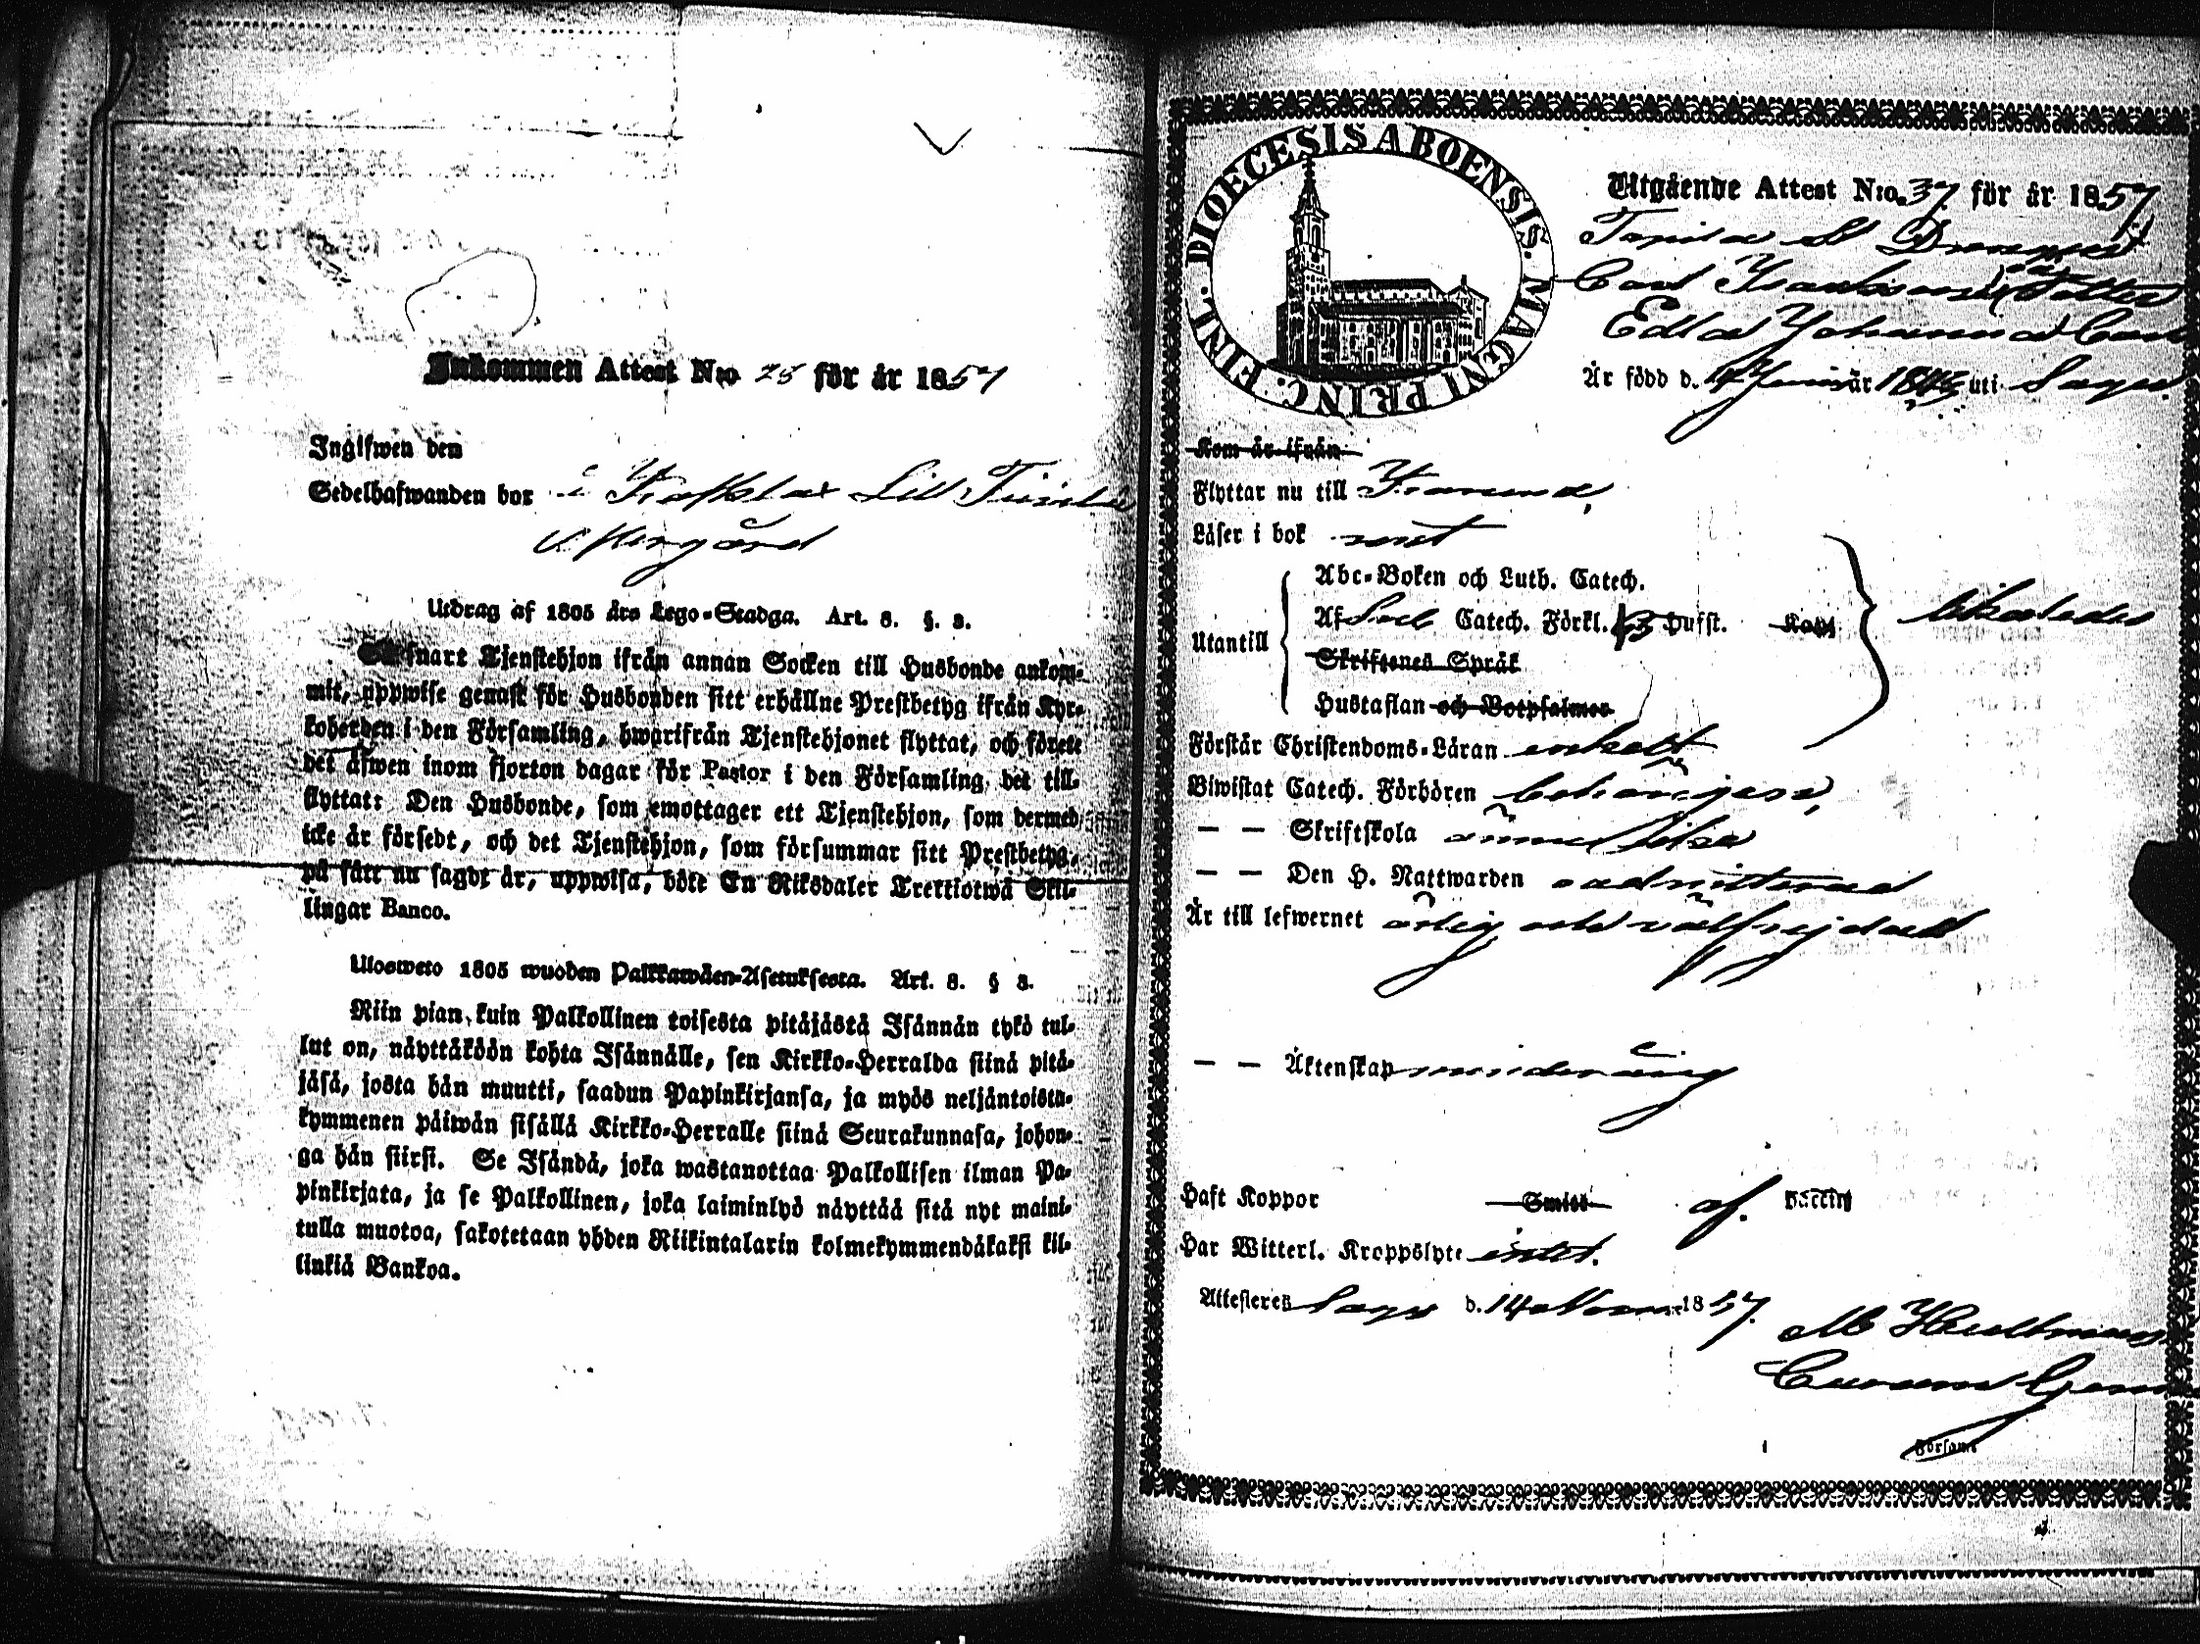 Inkommen Attest N:o 25 för år 1857
Ingifwen den
Sedelhafwanden bor i Lill
Utdrag af 1805 års Lego-Stadga. Art. 8. §. 3.
Så snart Tjenstehjon ifrån annan Socken till Husbonde ankom-
mit, uppwise genast för Husbonden sitt erhållne Prestbetyg ifrån Kyr-
koherden i den Församling, hwarifrån Tjenstehjonet flyttat, och förete
det äfwen inom fjorton dagar för Pastor i den Församling, det till-
flyttat: Den Husbonde, som emottager ett Tjenstehjon, som dermed
icke är försedt, och det Tjenstehjon, som försummar sitt Prestbetyg,
på sätt nu sagdt är, uppwisa, böte En Riksdaler Trettiotwå Skil-
lingar Banco.
Ulosweto 1805 wuoden Palkkawäen-Asetuksesta. Art. 8. § 3.
Niin pian kuin Palkollinen toisesta pitäjästä Isännän tykö tul-
lut on, näyttäköön kohta Isännälle, sen Kirkko-Herralda siinä pitä-
jäsä, josta hän muutti, saadun Papinkirjansa, ja myös neljäntoista-
kymmenen päiwän sisällä Kirkko-Herralle siinä Seurakunnasa, johon-
ga hän siirsi. Se Isändä, joka wastanottaa Palkollisen ilman Pa-
pinkirjata, ja se Palkollinen, joka laiminlyö näyttää sitä nyt maini-
tulla muotoa, sakotetaan yhden Riikintalarin kolmekymmendäkaksi kil-
linkiä Bankoa.
DIOECESIS ABOENSIS. MAGNI PRINC. FINL.
Utgående Attest N:o. 37 för år 1857
Carl Isakssons dotter
Edla Johanna
Är född d. uti Sagu
Kom år ifrån
Flyttar nu till
Läser i bok rent
Utantill
Abc-Boken och Luth. Catech.
Af Sveb Catech. Förkl. 3 Hufst. Kort
Skriftenes Språk
Hustaflan och Botpsalmer
likaledes
Förstår Christendoms-Läran enkelt
Biwistat Catech. Förhören behörigen,
— — Skriftskola
— — Den H. Nattwarden admitterad
Är till lefwernet ärlig och välfrejdad
— — Äktenskap minderårig
Haft Koppor Smitt af. Vaccin
Har Witterl. Kroppslyte intet.
Attesteres Sagu d. 14 Novem 1857.
M Hultman
Församl